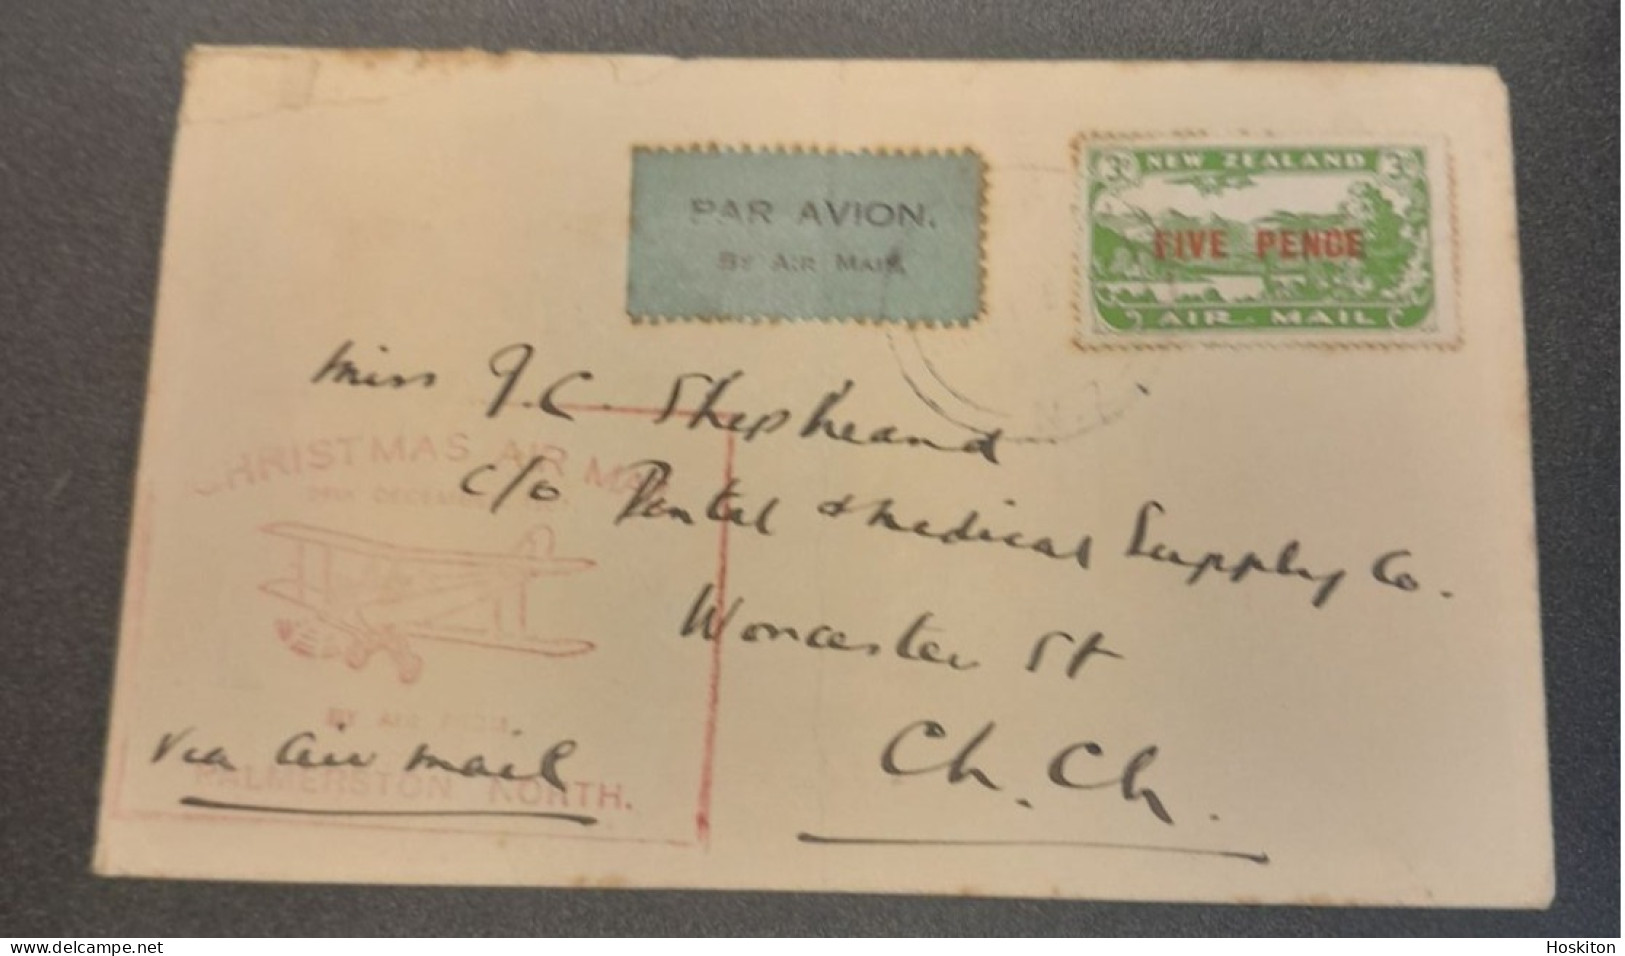 PAR AVION.
BY AIR MAIL
3D NEW ZEALAND 3D
FIVE PENCE
AIR MAIL
Miss J. C. Shepheard
c/o Dental & Medical Supply Co.
Worcester St
Ch. Ch.
CHRISTMAS AIR MAIL
DECEMBER
BY AIR MAIL
via air mail
PALMERSTON NORTH.
www.delcampe.net
Hoskiton